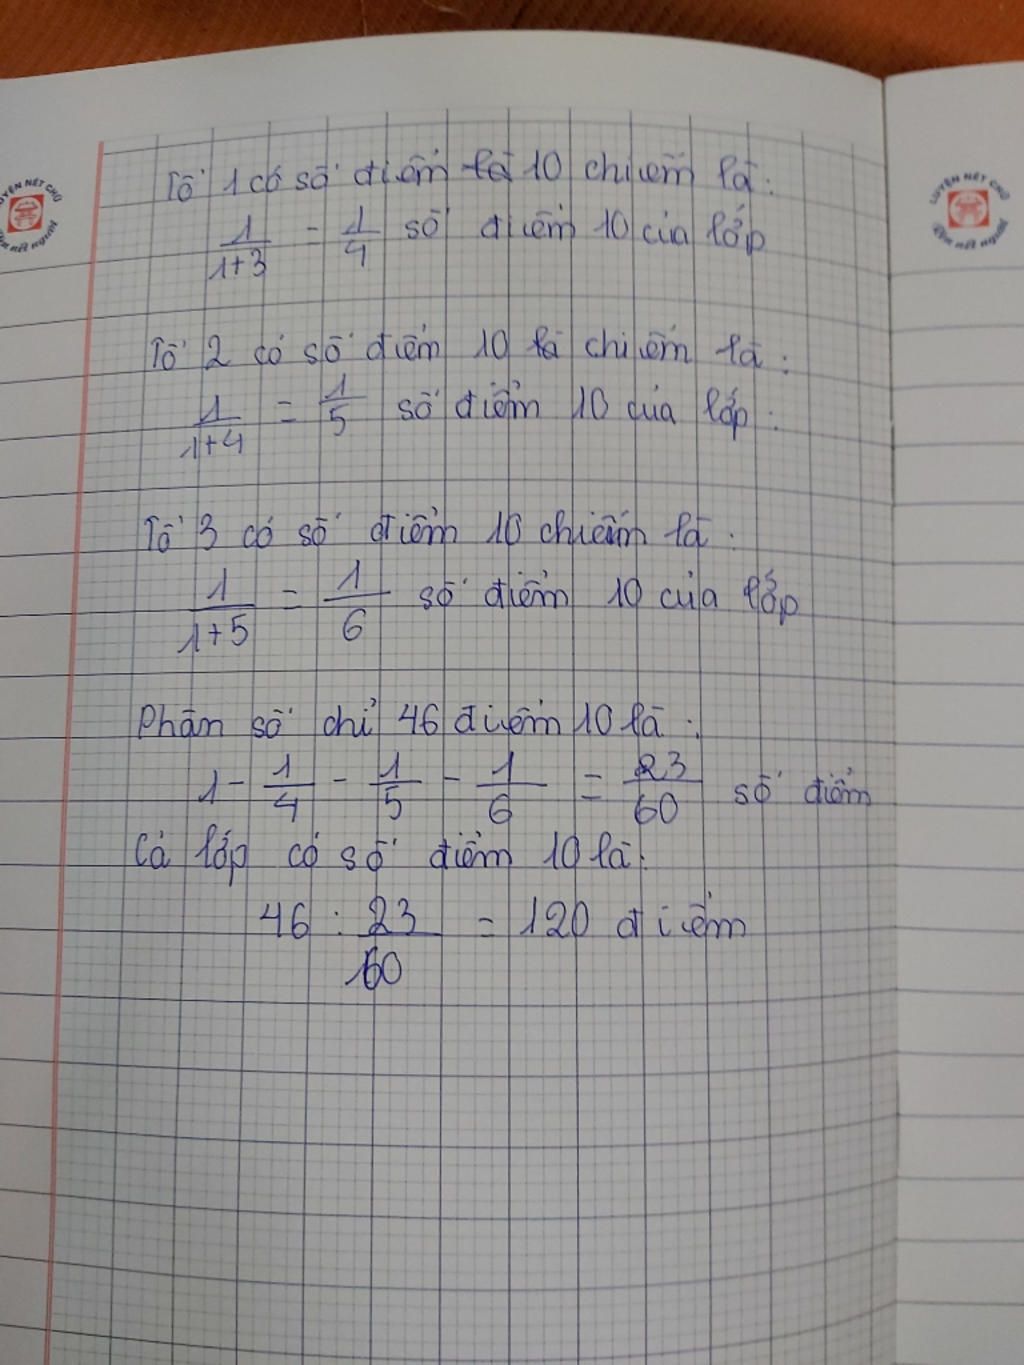 Tổ 1 có số điểm là 10 chiếm là:
1/1+3 = 1/4 số điểm 10 của lớp
Tổ 2 có số điểm 10 là chiếm là:
1/1+4 = 1/5 số điểm 10 của lớp:
Tổ 3 có số điểm 10 chiếm là:
1/1+5 = 1/6 số điểm 10 của lớp
Phân số chỉ 46 điểm 10 là:
1 - 1/4 - 1/5 - 1/6 = 23/60 số điểm
Cả lớp có số điểm 10 là:
46 : 23/60 = 120 điểm
LUYỆN NÉT CHỮ
Rèn nết người
LUYỆN NÉT CHỮ
Rèn nết người